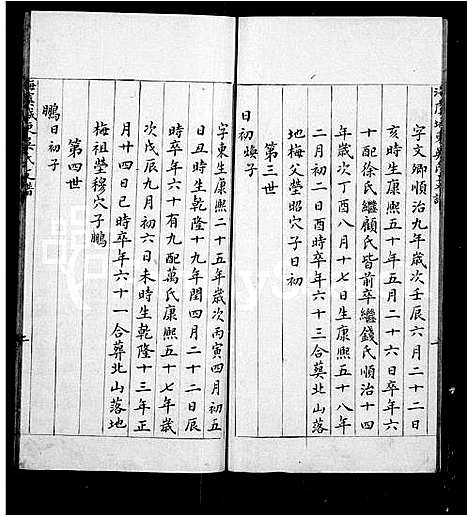 字文卿順治九年歲次壬辰六月二十二日
亥時生康熙五十五年五月二十六日卒年六
十配徐氏繼顧氏皆前卒繼錢氏順治十四
年歲次丁酉八月十七日生康熙五十八年
二月初二日酉時卒年六十三合葬北山落
地梅父塋昭穴子日初
第三世
日初煥子
字東生康熙二十五年歲次丙寅四月初五
日丑時生乾隆十九年閏四月二十二日辰
時卒年六十有九配萬氏康熙五十七年歲
次戊辰九月初六日未時生乾隆十三年正
月廿四日巳時卒年六十一合葬北山落地
梅祖塋穆穴子鵬
第四世
鵬日初子